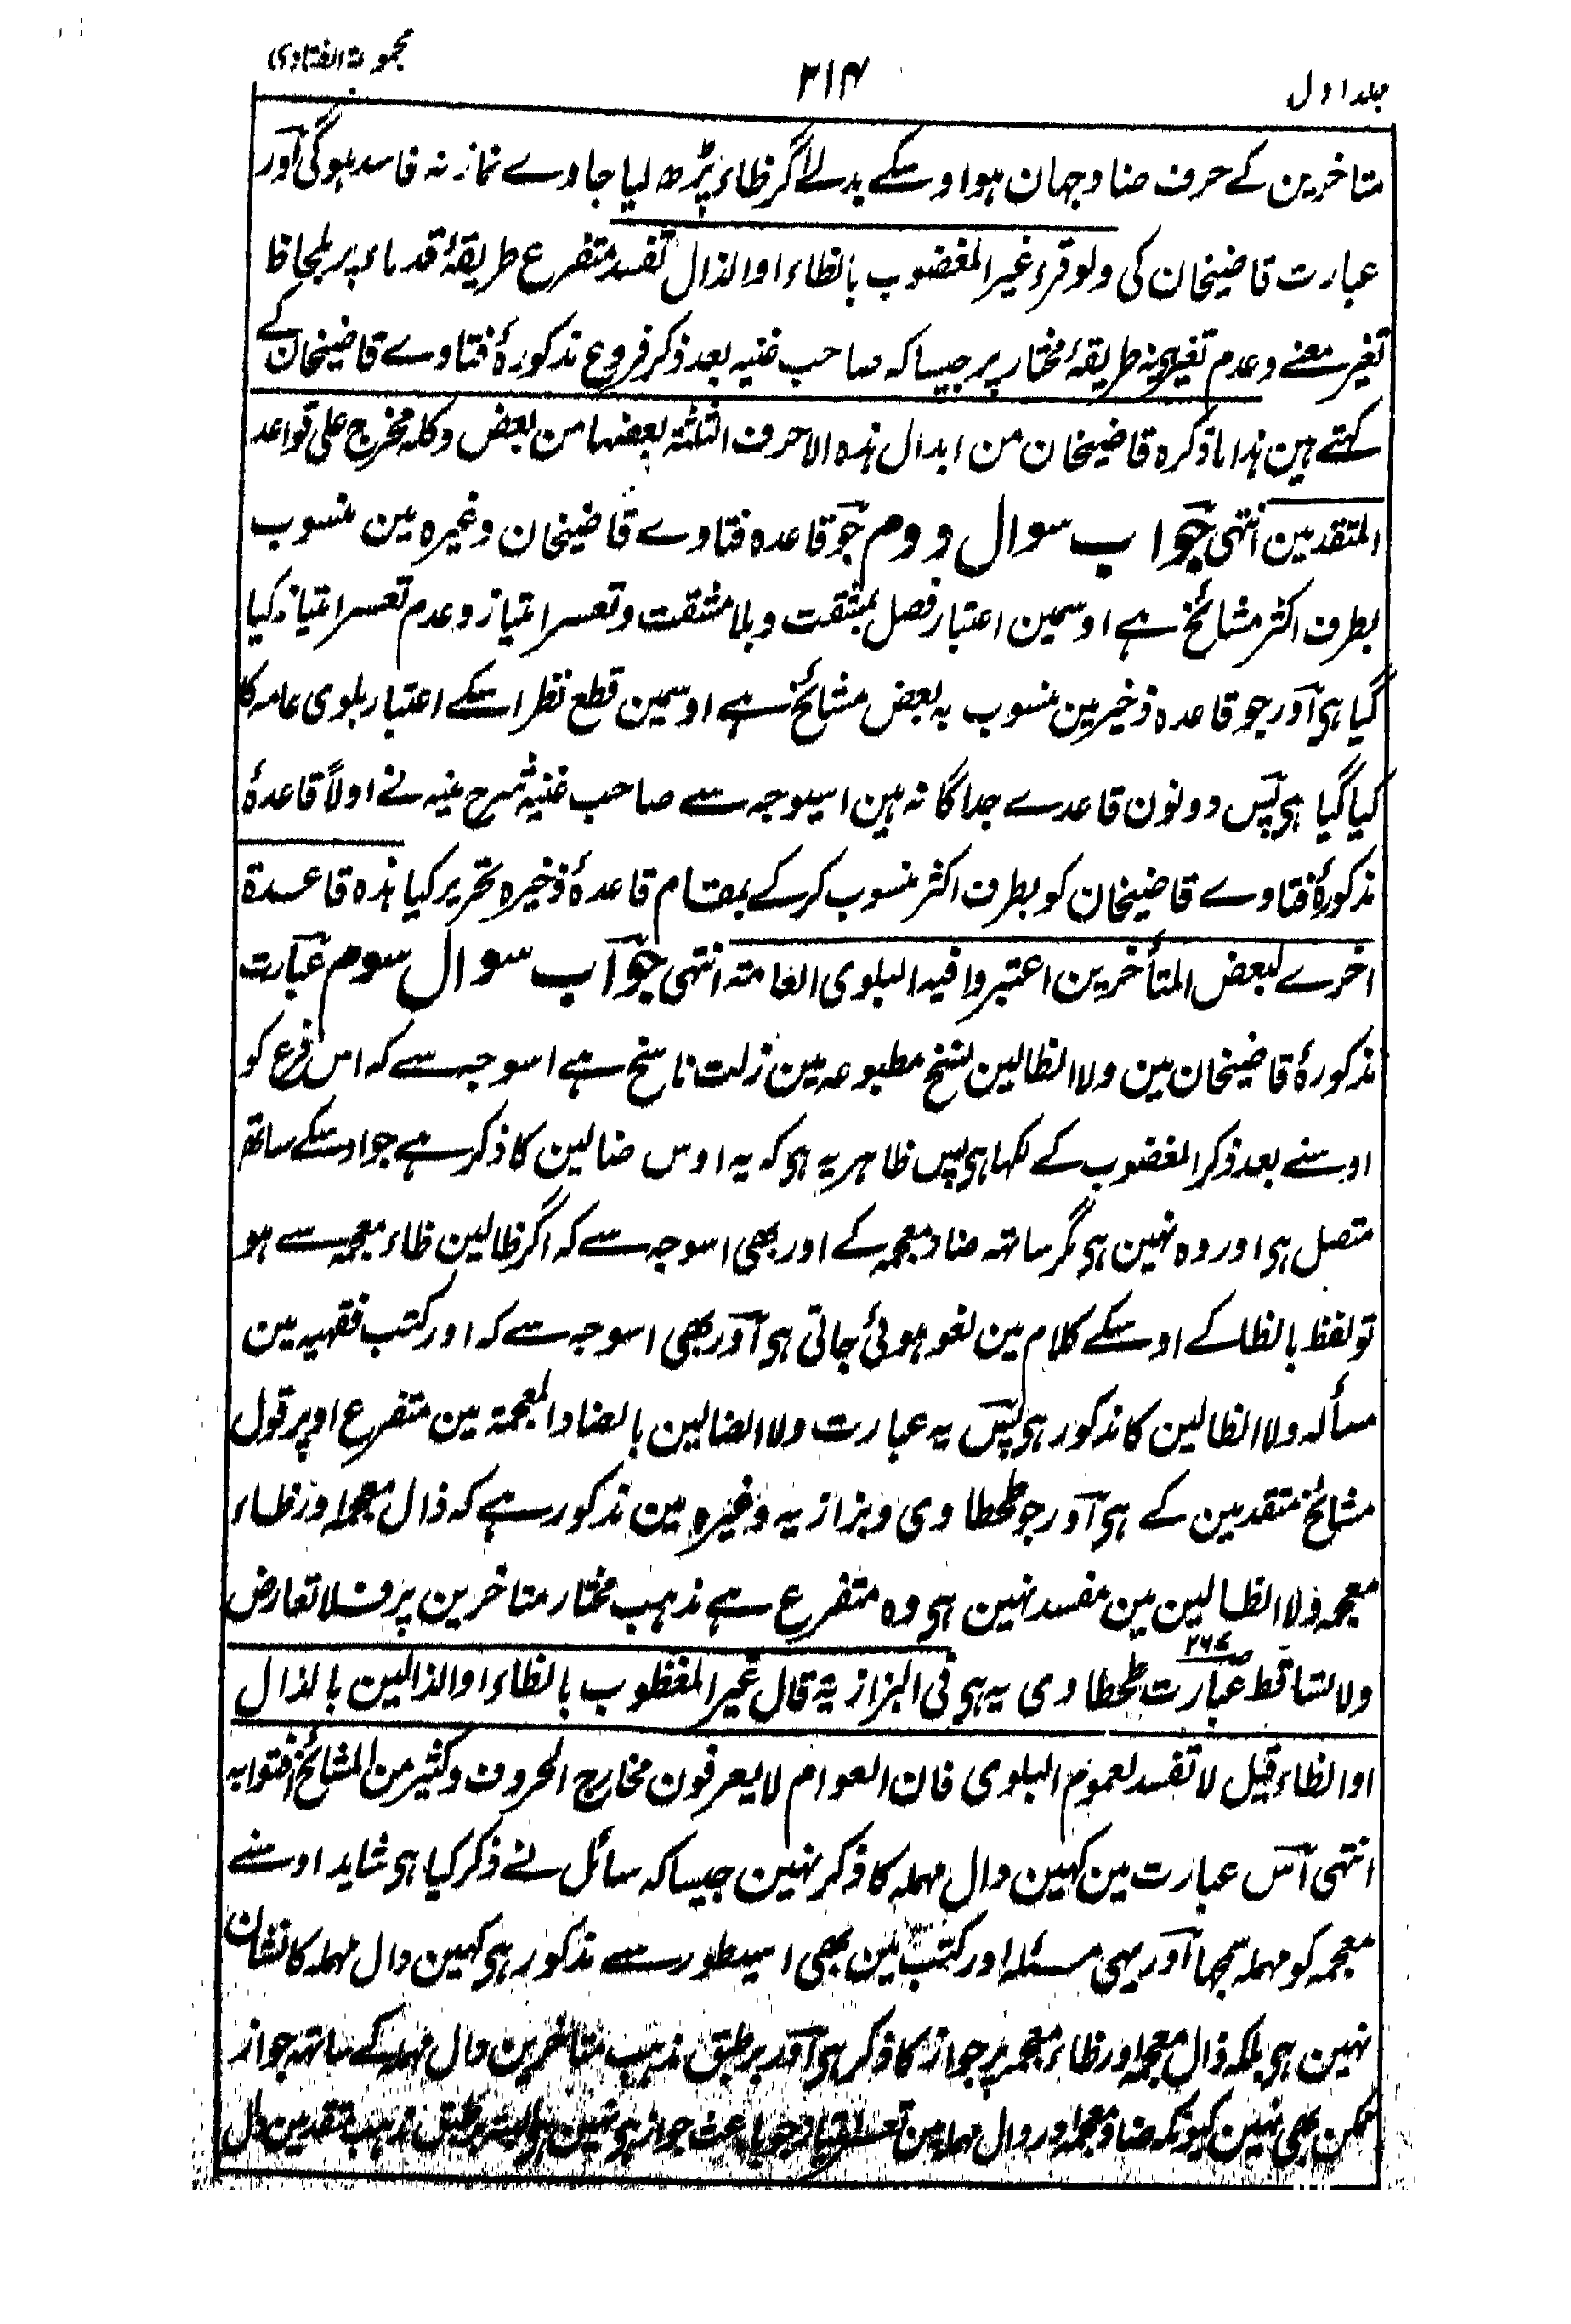 جلد اول ۳۱۴ مجموعۃ الفتاوی
متاخرین کے حرف ضاد جہان ہو اوسکے بدلے اگر ظاء پڑھ لیا جاوے نماز نہ فاسد ہوگی اور
عبارت قاضیخان کی ولو قرء غیر المغضوب بالظاء او الذال تفسد متفرع طریقۂ قدماء پر بلحاظ
تغیر معنے وعدم تغیر نہ طریقۂ مختار پر جیسا کہ صاحب غنیہ بعد ذکر فروع مذکورۂ فتاوے قاضیخان کے
کہتے ہین ہذا ما ذکرہ قاضیخان من ابدال ہذہ الاحرف الثلثۃ بعضہا من بعض وکلہ مخرج علی قواعد
المتقدمین انتہی جواب سوال دوم جو قاعدہ فتاوے قاضیخان وغیرہ مین منسوب
بطرف اکثر مشائخ ہے اوسمین اعتبار فصل بمشقت وبلا مشقت وتعسر امتیاز وعدم تعسر امتیاز کیا
گیا ہی اور جو قاعدہ ذخیرمین منسوب بہ بعض مشائخ ہے اوسمین قطع نظر اسکے اعتبار بلوی عامہ کا
کیا گیا ہی پس دونون قاعدے جداگانہ ہین اسیوجہ سے صاحب غنیہ شرح منیہ نے اولاً قاعدۂ
مذکورۂ فتاوے قاضیخان کو بطرف اکثر منسوب کرکے بمقام قاعدۂ ذخیرہ تحریر کیا ہذہ قاعدۃ
اخرے لبعض المتأخرین اعتبروا فیہ البلوی العامتہ انتہی جواب سوال سوم عبارت
مذکورۂ قاضیخان مین ولا الظالین نسخ مطبوعہ مین زلت ناسخ ہے اسوجہ سے کہ اس فرع کو
اوسنے بعد ذکر المغضوب کے لکہا ہی پس ظاہر یہ ہی کہ یہ اوس ضالین کا ذکر ہے جو اوسکے ساتھ
متصل ہی اور وہ نہین ہی مگر ساتہ ضاد معجمہ کے اور بھی اسوجہ سے کہ اگر ظالین ظاء معجمہ سے ہو
تو لفظ بالظا کے اوسکے کلام مین لغو ہوئی جاتی ہی اور بھی اسوجہ سے کہ اور کتب فقہیہ مین
مسألہ ولا الظالین کا مذکور ہی پس یہ عبارت ولا الضالین بالضاد المعجمۃ مین متفرع اوپر قول
مشائخ متقدمین کے ہی اور جو طحطاوی وبزازیہ وغیرہ مین مذکور ہے کہ ذال معجمہ اور ظاء
معجمہ ولا الظالین مین مفسد نہین ہی وہ متفرع ہے مذہب مختار متاخرین پر فلا تعارض
ولا تساقط عبارت طحطاوی یہ ہی فی البزازیۃ قال غیر المغظوب بالظاء او الذالین بالذال
او الظاء قیل لا تفسد لعموم البلوی فان العوام لا یعرفون مخارج الحروف وکثیر من المشائخ افتوا بہ
انتہی اس عبارت مین کہین دال مہملہ کا ذکر نہین جیسا کہ سائل نے ذکر کیا ہی شاید اوسنے
معجمہ کو مہملہ سمجہا اور یہی مسئلہ اور کتب مین بھی اسیطور سے مذکور ہی کہین دال مہملہ کا نشان
نہین ہی بلکہ ذال معجمہ اور ظاء معجمہ پر جواز کا ذکر ہی اور برطبق مذہب متاخرین دال مہملہ کے ساتہ جواز
ممکن بھی نہین کیونکہ ضاد معجمہ اور دال مہملہ مین تعسر امتیاز جو باعث جواز ہی نہین ہی البتہ برطبق مذہب متقدمین دال